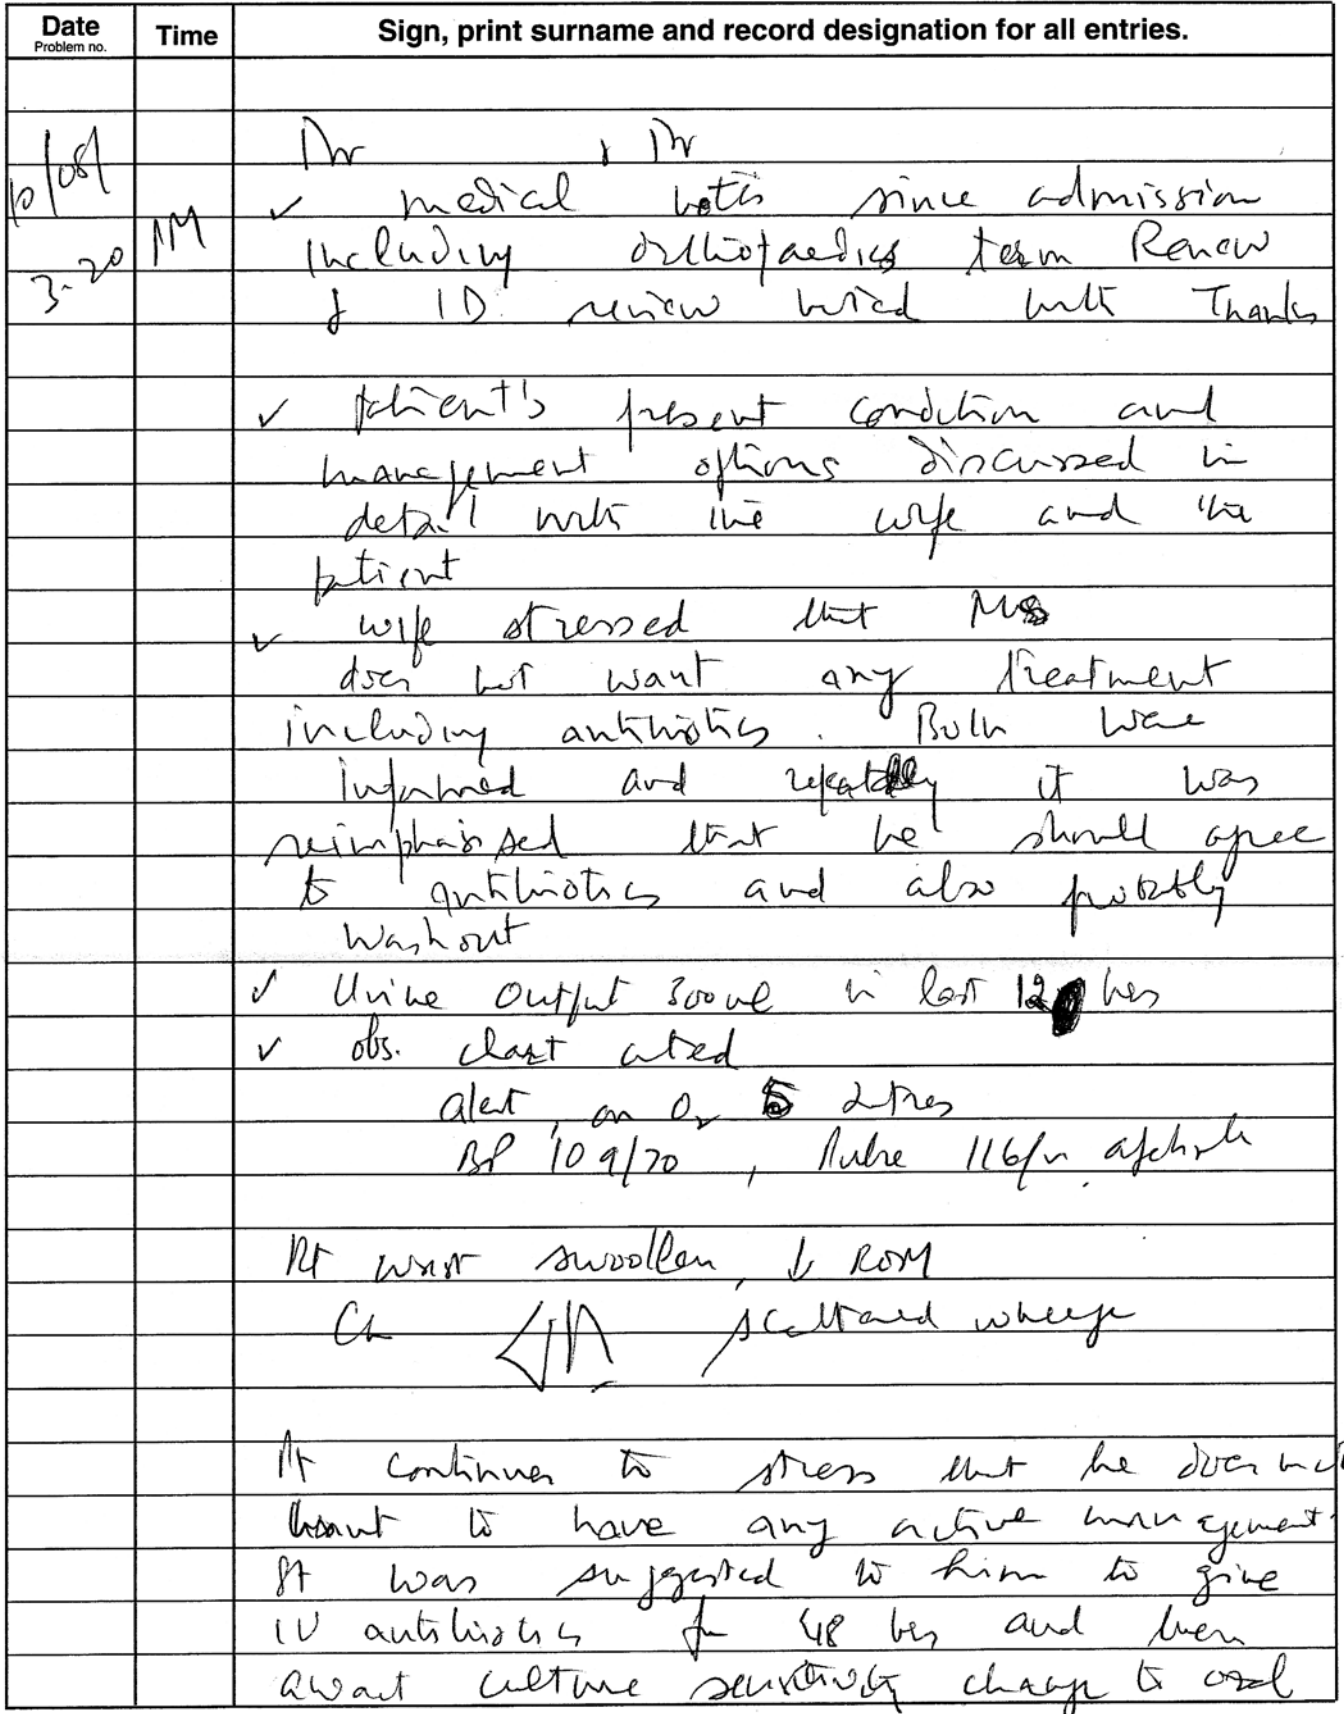 Date
Problem no.
Time
Sign, print surname and record designation for all entries.
10/08/
3-20 PM
Dr , Dr
✓ medical notes since admission
including orthopaedics team Review
& ID review noted with Thanks
✓ patient's present condition and
management options discussed in
detail with the wife and the
patient
✓ wife stressed that
does not want any treatment
including antibiotics. Both were
informed and repeatedly it was
reimphasised that he should agree
to antibiotics and also probably
washout
✓ Urine output 300ml in last 12 hrs
✓ obs. chart noted
alert, on O2 2 litres
BP 109/70, Pulse 116/m afebrile
Rt wrist swoollen, ↓ ROM
scattered wheeze
Pt continues to stress that he does not
want to have any active management.
It was suggested to him to give
IV antibiotics for 48 hrs and then
await culture sensitivity change to oral